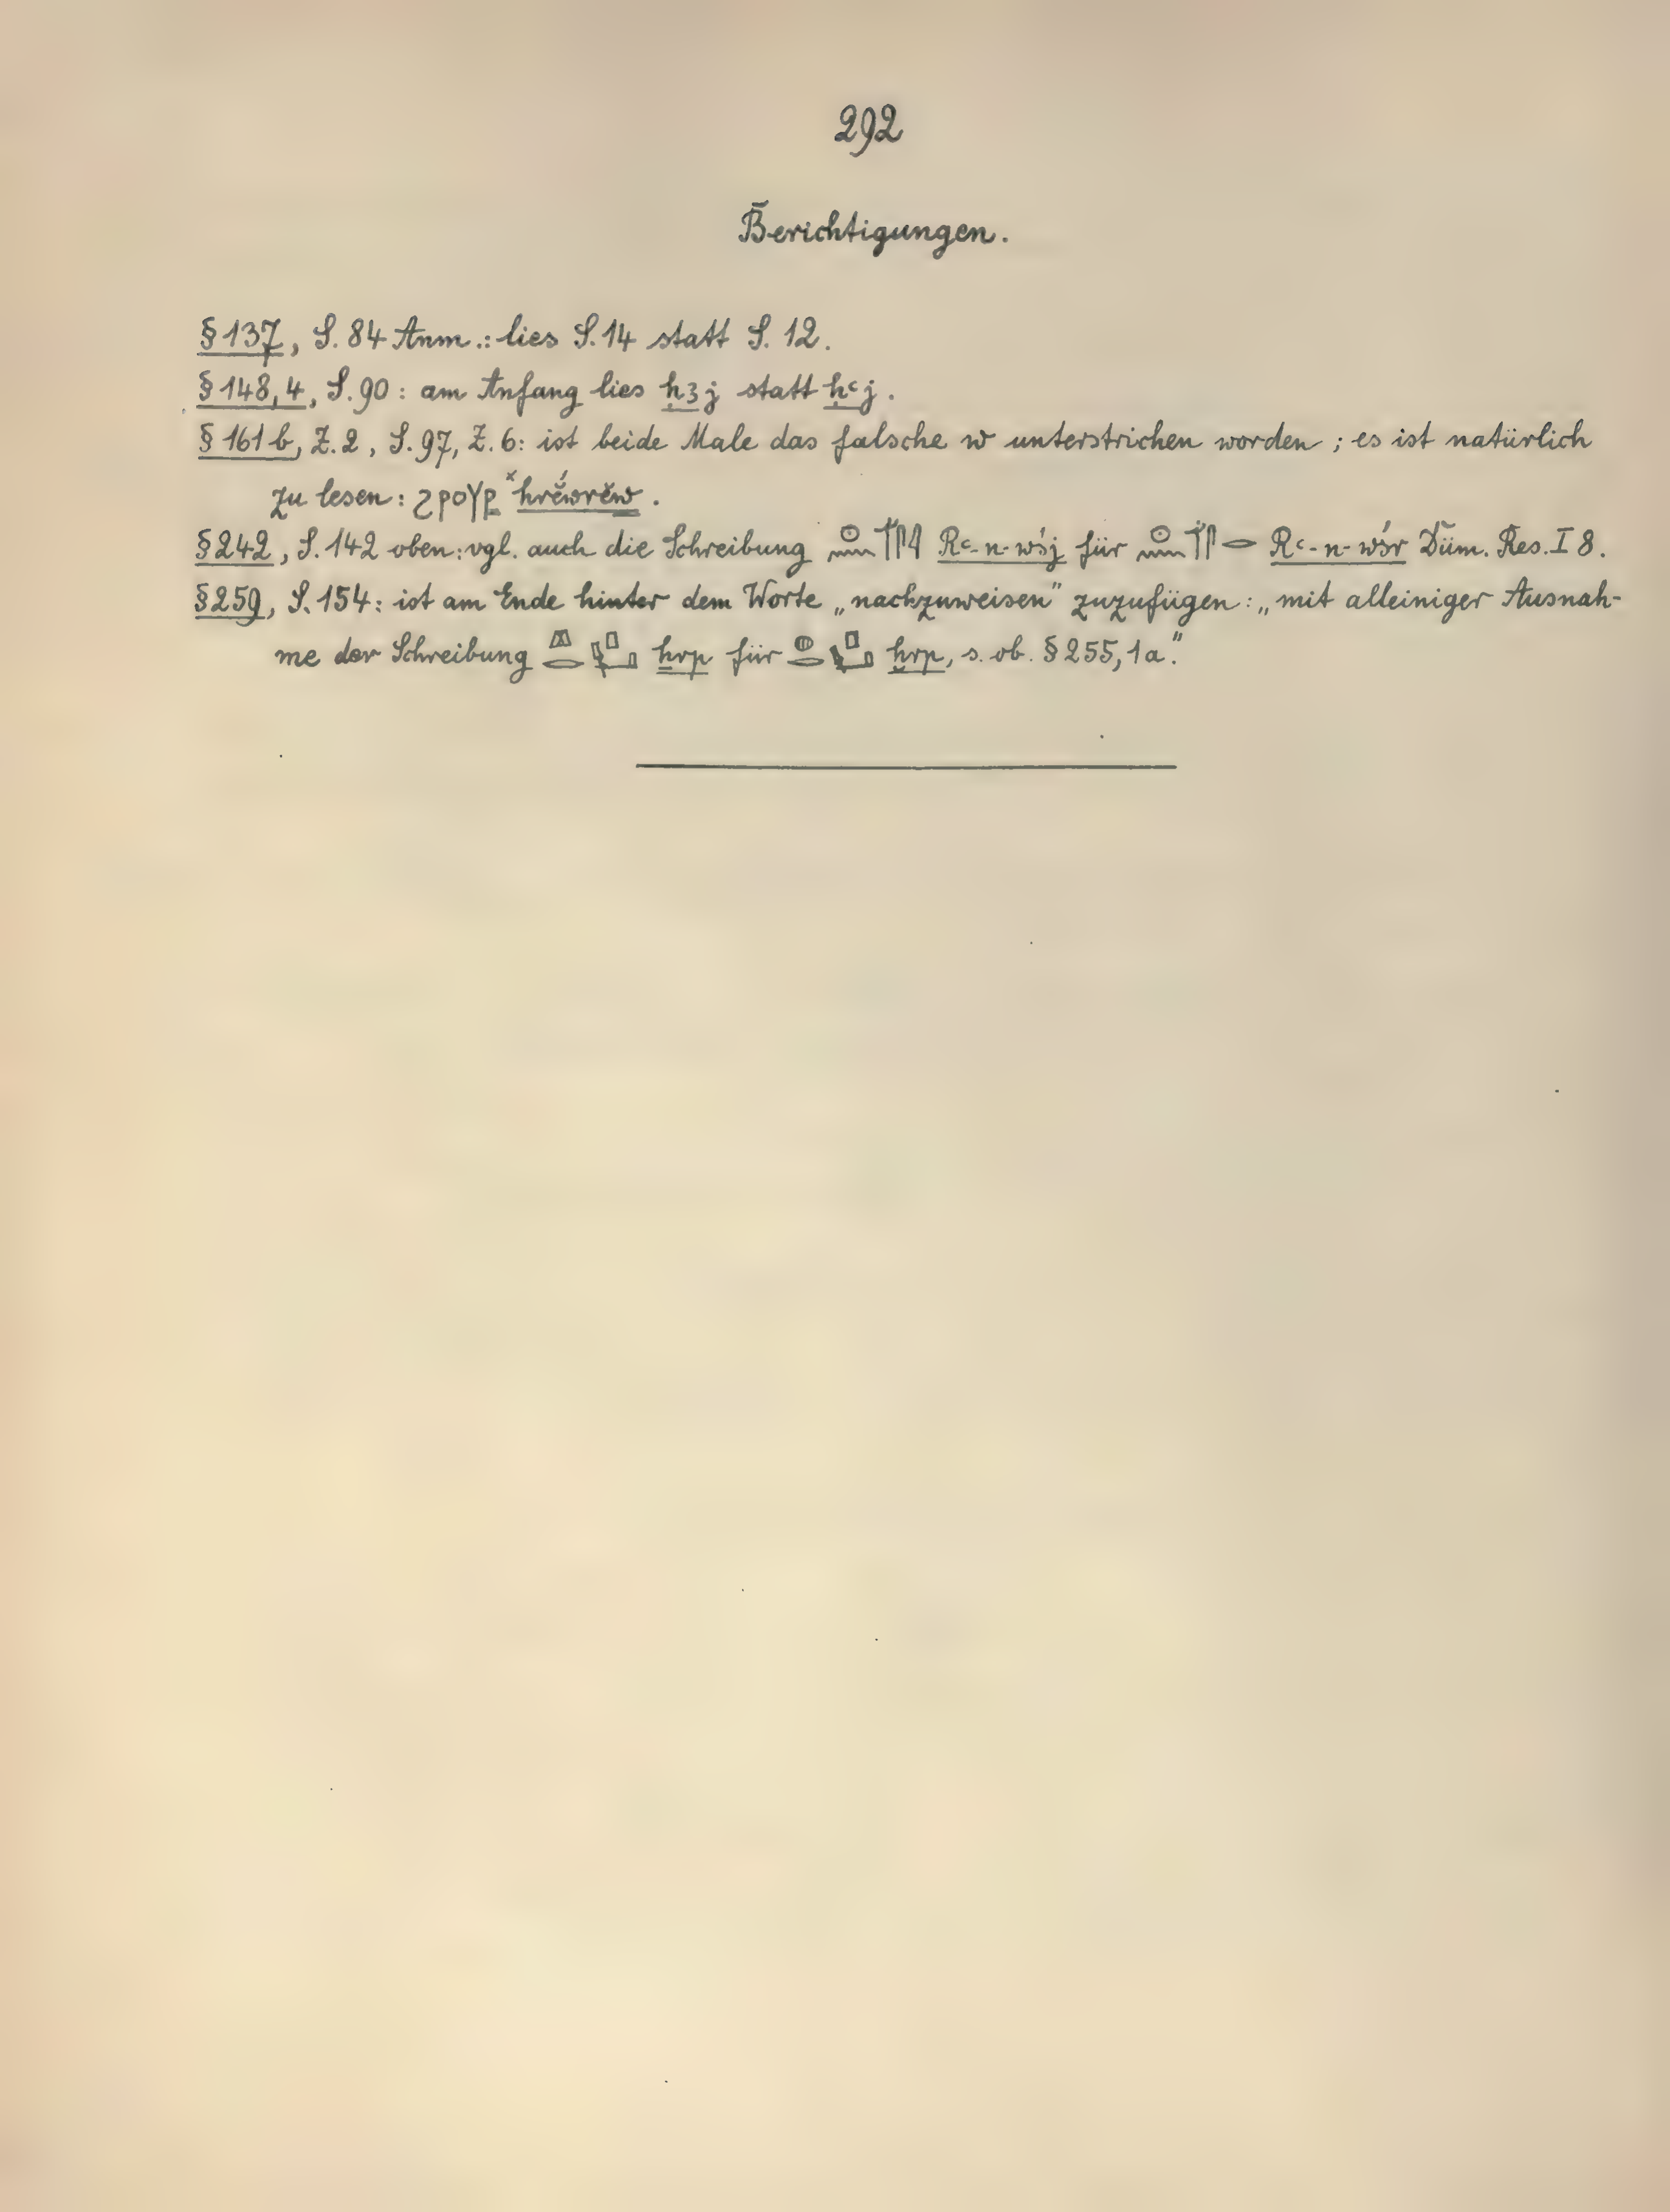 292
Berichtigungen.
§ 137, S. 84 Anm.: lies S. 14 statt S. 12.
§ 148,4, S. 90: am Anfang lies ḥꜣj statt ḥꜥj.
§ 161 b, Z. 2, S. 97, Z. 6: ist beide Male das falsche w unterstrichen worden; es ist natürlich
zu lesen: ϩⲣⲟⲩⲣ ˣhrĕ́wrĕw.
§ 242, S. 142 oben: vgl. auch die Schreibung 𓇳𓈖𓄊𓋴𓇋 Rꜥ-n-wśj für 𓇳𓈖𓄊𓋴𓂋 Rꜥ-n-wśr Düm. Res. I 8.
§ 259, S. 154: ist am Ende hinter dem Worte „nachzuweisen" zuzufügen: „mit alleiniger Ausnah-
me der Schreibung ẖrp für ḫrp, s. ob. § 255, 1 a."